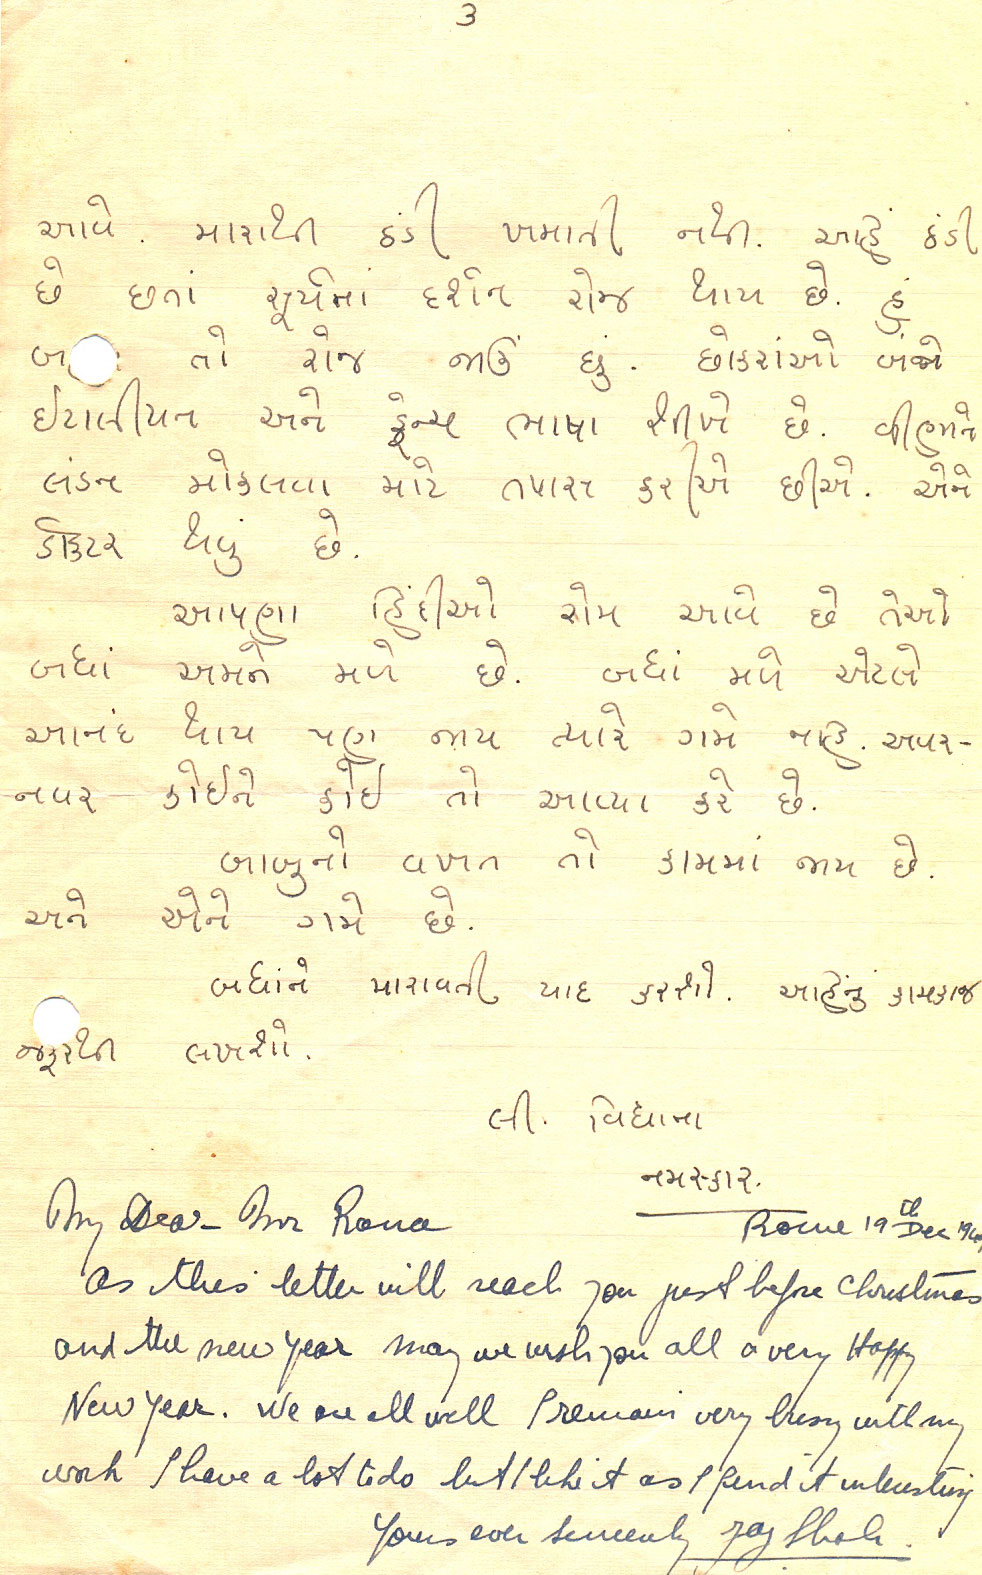 3
આવે. મારાથી ઠંડી ખમાતી નથી. આહિં ઠંડી
છે છતાં સૂર્યનાં દર્શન રોજ થાય છે. હું
તો રોજ જાઉં છું. છોકરાંઓ બંન્ને
ઈટાલીયન અને ફ્રેન્ચ ભાષા શીખે છે. વીણાને
લંડન મોકલવા માટે તપાસ કરીએ છીએ. એને
ડૉક્ટર થવું છે.
આપણા હિંદીઓ રોમ આવે છે તેઓ
બધાં અમને મળે છે. બધાં મળે એટલે
આનંદ થાય પણ જાય ત્યારે ગમે નહિ. અવર-
નવર કોઈને કોઈ તો આવ્યા કરે છે.
બાબુનો વખત તો કામમાં જાય છે.
અને એને ગમે છે.
બધાંને મારાવતી યાદ કરશો. આહિંનું કામકાજ
જરૂરથી લખશો.
લી. વિદ્યાના
નમસ્કાર.
My Dear Mr Rana
Rome 19th Dec
As this letter will reach you just before Christmas
and the new year may we wish you all a very Happy
New Year. We are all well I remain very busy with my
work I have a lot to do but I like it as I find it interesting
Yours ever sincerely Shah.